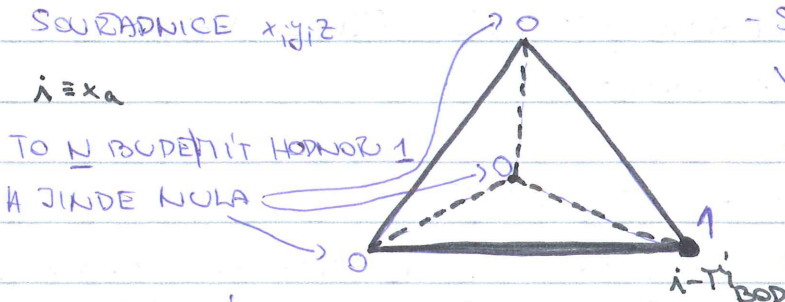 SOUŘADNICE x,y,z
O
- S
i ≡ xa
TO N BUDE MÍT HODNOR 1
O
A JINDE NULA
1
O
i-TÝ BOD